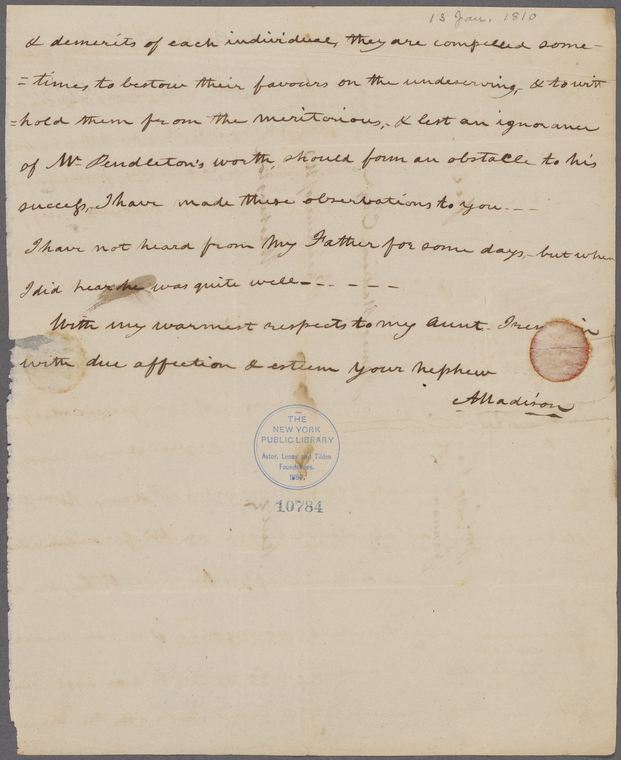 13 Jan. 1810
& demerits of each individual, they are compelled some-
=times to bestow their favours on the undeserving, & to wit
=hold them from the meritorious,- & lest an ignorance
of Mr Pendleton's worth, should form an obstacle to his
success, I have made these observations to you. — —
I have not heard from My Father for some days,- but when
I did hear he was quite well — - - - - -
With my warmest respects to my Aunt. I remain
with due affection & esteem your nephew
AMadison
THE
NEW YORK
PUBLIC LIBRARY
Astor, Lenox and Tilden
Foundations.
1897.
10784